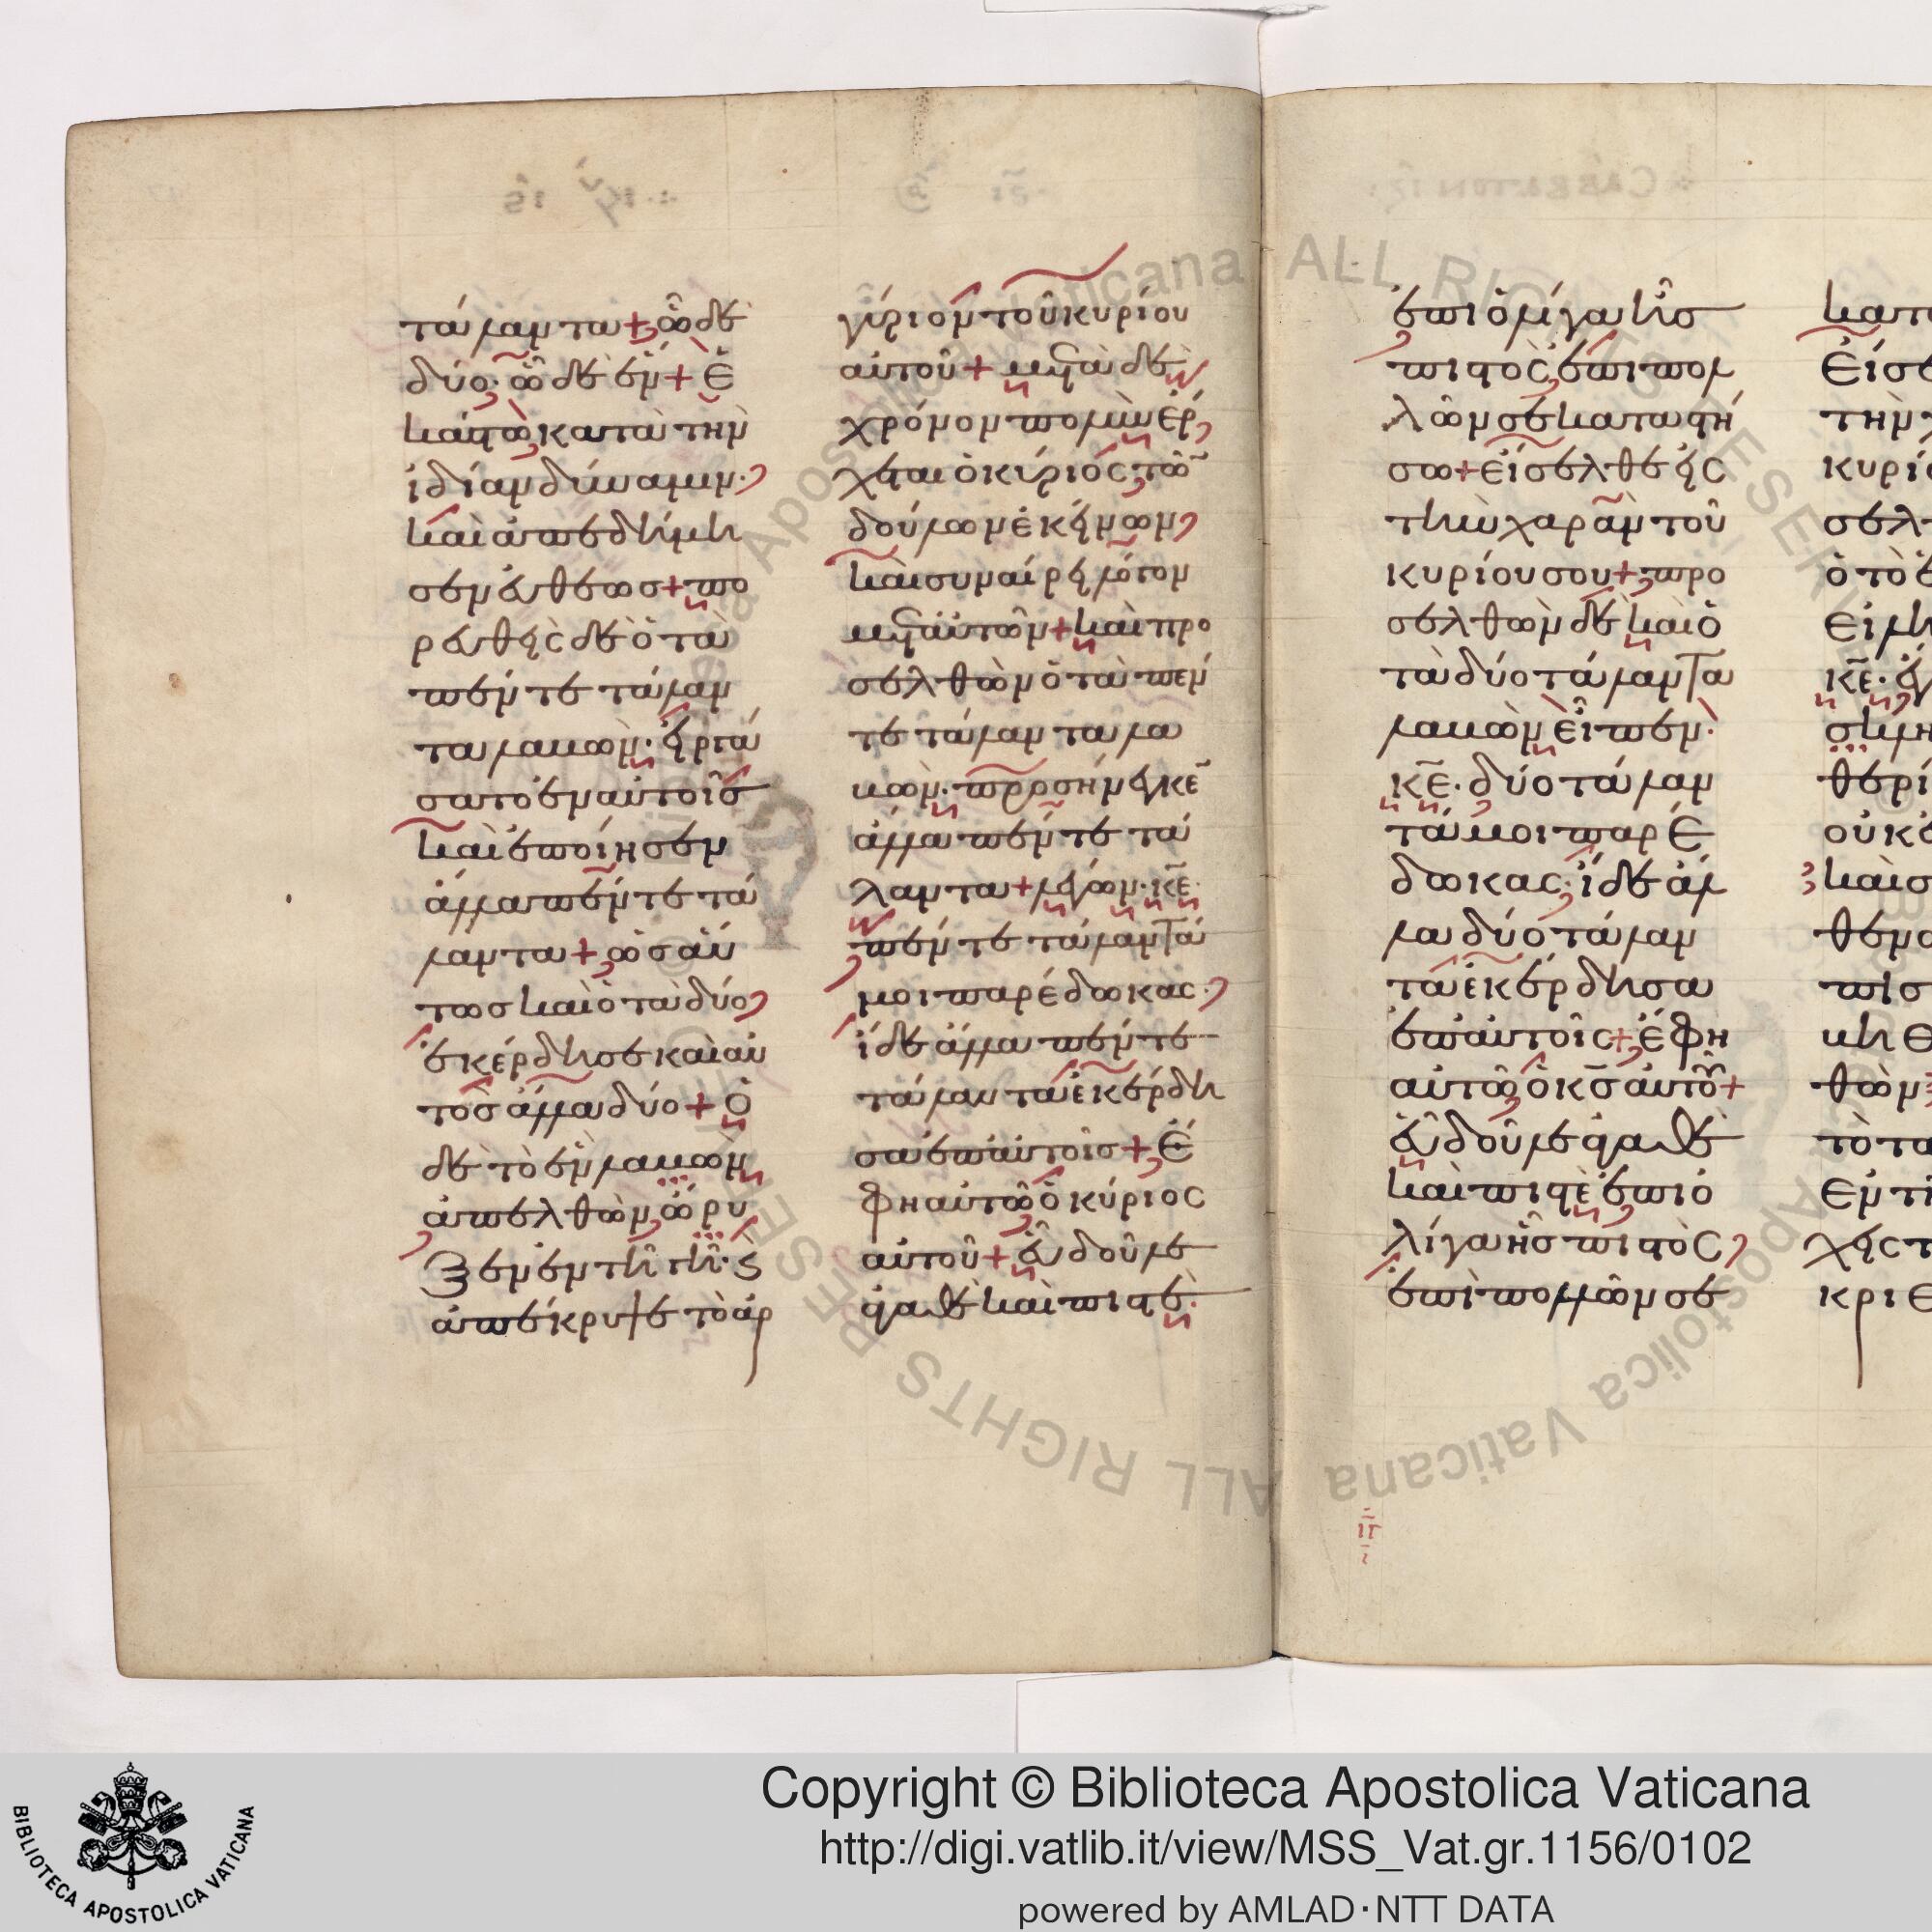 τάλαντα + ᾧ δὲ
δύο· ᾧ δὲ ἕν + ἑ
κάστῳ κατὰ τὴν
ἰδίαν δύναμιν·
καὶ ἀπεδήμη
σεν εὐθέως + πο
ρευθεὶς δὲ ὁ τὰ
πέντε τάλαν
τα λαβὼν· εἰργά
σατο ἐν αὐτοῖς
καὶ ἐποίησεν
ἄλλα πέντε τά
λαντα + ὡσαύ
τως καὶ ὁ τὰ δύο
ἐκέρδησε καὶ αὐ
τὸς ἄλλα δύο + ὁ
δὲ τὸ ἓν λαβὼν
ἀπελθὼν ὤρυ
ξεν ἐν τῇ γῇ· καὶ
ἀπέκρυψε τὸ ἀρ
γύριον τοῦ κυρίου
αὐτοῦ + μετὰ δὲ
χρόνον πολὺν ἔρ
χεται ὁ κύριος τῶν
δούλων ἐκείνων
καὶ συναίρει λόγον
μετ αὐτῶν + καὶ προ
σελθὼν ὁ τὰ πέν
τε τάλαντα λα
βὼν· προσήνεγκεν
ἄλλα πέντε τά
λαντα + λέγων· κε̄
πέντε τάλαντά
μοι παρέδωκας·
ἴδε ἄλλα πέντε
τάλαντα ἐκέρδη
σα ἐπ αὐτοῖς + ἔ
φη αὐτῷ ὁ κύριος
αὐτοῦ + εὖ δοῦλε
ἀγαθὲ καὶ πιστέ·
ἐπὶ ὀλίγα ἦς
πιστὸς ἐπὶ πολ
λῶν σε καταστή
σω + εἴσελθε εἰς
τὴν χαρὰν τοῦ
κυρίου σου + προ
σελθὼν δὲ καὶ ὁ
τὰ δύο τάλαντα
λαβὼν εἶπεν·
κε̄· δύο τάλαν
τά μοι παρέ
δωκας· ἴδε ἄλ
λα δύο τάλαν
τα ἐκέρδησα
ἐπ αὐτοῖς + ἔφη
αὐτῷ ὁ κς̄ αὐτοῦ +
εὖ δοῦλε ἀγαθὲ
καὶ πιστὲ ἐπὶ ὀ
λίγα ἦς πιστὸς
ἐπὶ πολλῶν σε
κατα
εἴσε
τὴν
κυρί
σελ
ὁ τὸ ἓ
εἰλη
κε̄· ἔγ
σκλη
θερί
οὐκ ἔ
καὶ σ
θεν ο
πισ
θὼν
τὸ τα
κριε
Copyright © Biblioteca Apostolica Vaticana
http://digi.vatlib.it/view/MSS_Vat.gr.1156/0102
powered by AMLAD·NTT DATA
BIBLIOTECA APOSTOLICA VATICANA